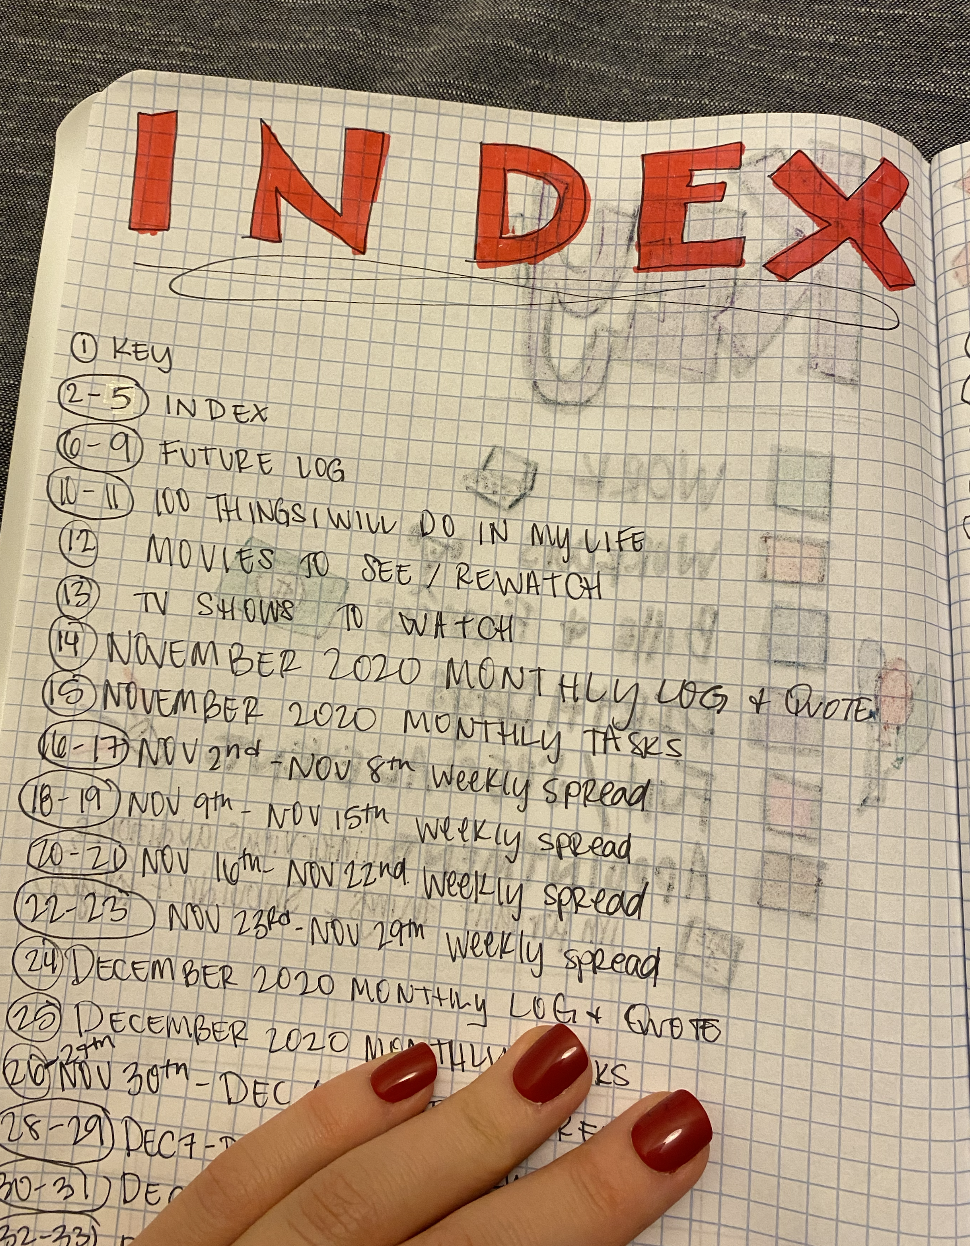 INDEX
1 KEY
2-5 INDEX
6-9 FUTURE LOG
10-11 100 THINGS I WILL DO IN MY LIFE
12 MOVIES TO SEE / REWATCH
13 TV SHOWS TO WATCH
14 NOVEMBER 2020 MONTHLY LOG & QUOTE
15 NOVEMBER 2020 MONTHLY TASKS
16-17 NOV 2nd - NOV 8th weekly spread
18-19 NOV 9th - NOV 15th weekly spread
20-21 NOV 16th - NOV 22nd weekly spread
22-23 NOV 23rd - NOV 29th weekly spread
24 DECEMBER 2020 MONTHLY LOG & QUOTE
25 DECEMBER 2020 MONTHLY KS
26 NOV 30th - DEC
28-29 DEC 7 -
30-31 DEC
32-33